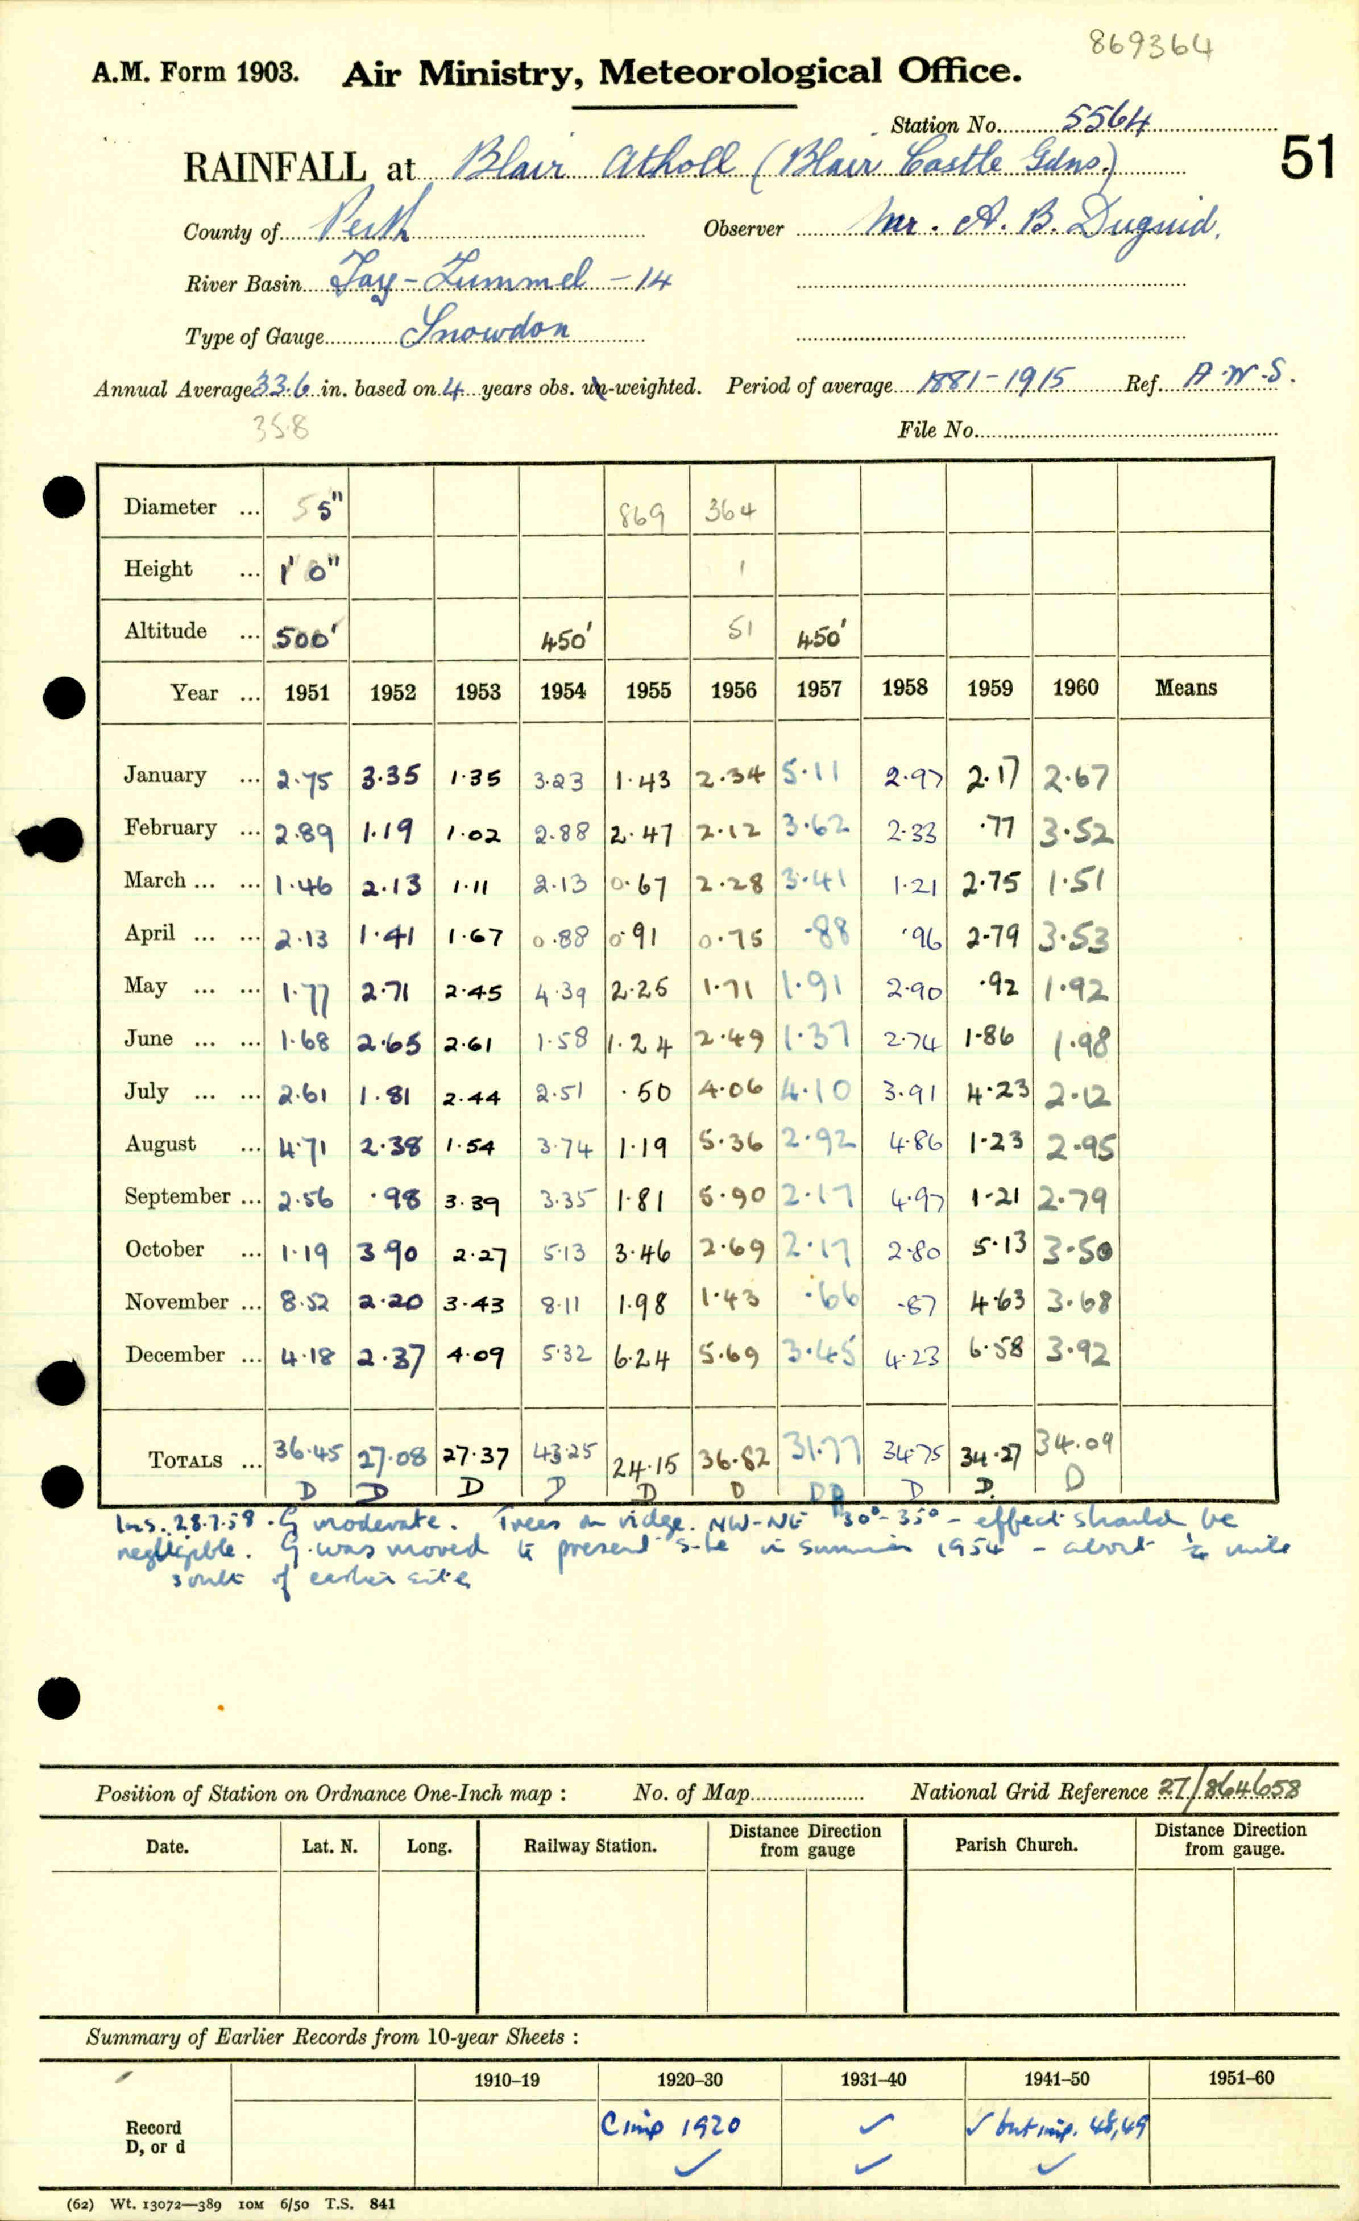 869364
A.M. Form 1903. Air Ministry, Meteorological Office.
Station No. 5564
51
RAINFALL at Blair Atholl (Blair Castle Gdns.)
County of Perth Observer Mr. A. B. Duguid.
River Basin Tay-Tummel - 14
Type of Gauge Snowdon
Annual Average 33.6 in. based on 4 years obs. un-weighted. Period of average 1881-1915 Ref. A.W.S.
35.8
File No.
Diameter ... 5" 869 364
Height ... 1' 0" 1
Altitude ... 500' 450' 51 450'
Year ... 1951 1952 1953 1954 1955 1956 1957 1958 1959 1960 Means
January ... 2.75 3.35 1.35 3.23 1.43 2.34 5.11 2.97 2.17 2.67
February ... 2.89 1.19 1.02 2.88 2.47 2.12 3.62 2.33 .77 3.52
March ... ... 1.46 2.13 1.11 2.13 0.67 2.28 3.41 1.21 2.75 1.51
April ... ... 2.13 1.41 1.67 0.88 0.91 0.75 .88 .96 2.79 3.53
May ... ... 1.77 2.71 2.45 4.39 2.25 1.71 1.91 2.90 .92 1.92
June ... ... 1.68 2.65 2.61 1.58 1.24 2.49 1.37 2.74 1.86 1.98
July ... ... 2.61 1.81 2.44 2.51 .50 4.06 4.10 3.91 4.23 2.12
August ... 4.71 2.38 1.54 3.74 1.19 5.36 2.92 4.86 1.23 2.95
September ... 2.56 .98 3.39 3.35 1.81 5.90 2.17 4.97 1.21 2.79
October ... 1.19 3.90 2.27 5.13 3.46 2.69 2.17 2.80 5.13 3.50
November ... 8.52 2.20 3.43 8.11 1.98 1.43 .66 .87 4.63 3.68
December ... 4.18 2.37 4.09 5.32 6.24 5.69 3.45 4.23 6.58 3.92
TOTALS ... 36.45 27.08 27.37 43.25 24.15 36.82 31.77 34.75 34.27 34.09
D D D D D D D D D D
Ins. 28.7.58. G moderate. Trees on ridge. NW-NE 30°-35° - effect should be
negligible. G. was moved to present site in summer 1954 - about ¼ mile
south of earlier site
Position of Station on Ordnance One-Inch map : No. of Map National Grid Reference 27/864658
Date. Lat. N. Long. Railway Station. Distance Direction from gauge Parish Church. Distance Direction from gauge.
Summary of Earlier Records from 10-year Sheets :
1910–19 1920–30 1931–40 1941–50 1951–60
Record C imp 1920 ✓ ✓ but imp. 48,49
D, or d ✓ ✓ ✓
(62) Wt. 13072—389 10M 6/50 T.S. 841